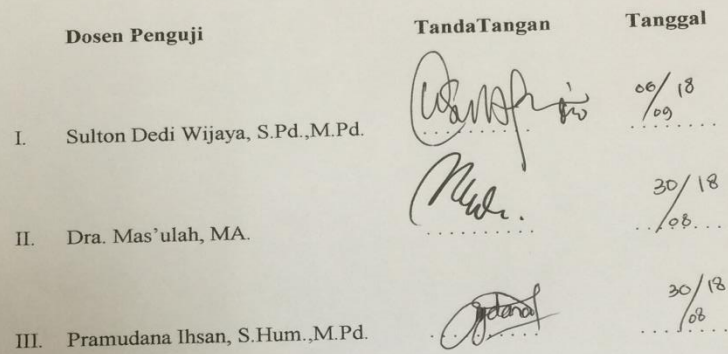 Dosen Penguji TandaTangan Tanggal
I. Sulton Dedi Wijaya, S.Pd.,M.Pd. 06/09 18
II. Dra. Mas'ulah, MA. 30/08 18
III. Pramudana Ihsan, S.Hum.,M.Pd. 30/08 18